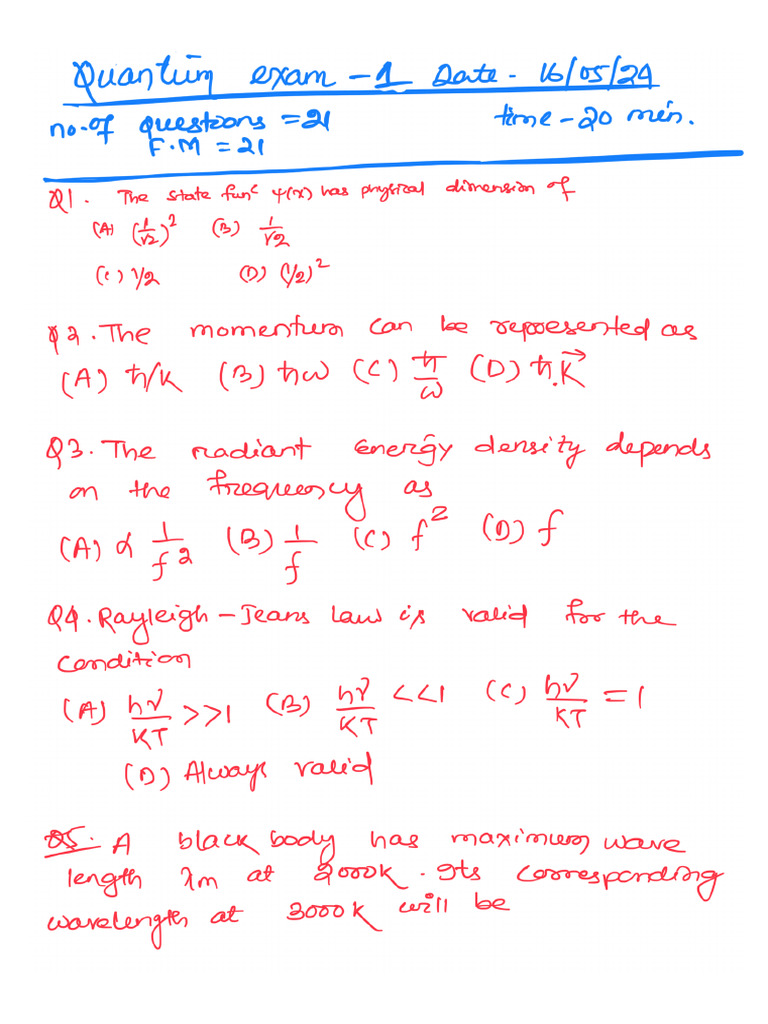 Quantum exam - 1 Date - 16/05/24
no. of questions = 21 time - 20 min.
F.M = 21
Q1. The state funᶜ ψ(x) has physical dimension of
(A) (1/√2)² (B) 1/√2
(C) 1/2 (D) (1/2)²
Q2. The momentum can be represented as
(A) ħ/K (B) ħω (C) ħ/ω (D) ħ.K⃗
Q3. The radiant energy density depends
on the frequency as
(A) α 1/f² (B) 1/f (C) f² (D) f
Q4. Rayleigh - Jeans law is valid for the
condition
(A) hν/KT >>1 (B) hν/KT <<1 (C) hν/KT = 1
(D) Always valid
Q5. A black body has maximum wave
length λm at 2000K. Its corresponding
wavelength at 3000K will be